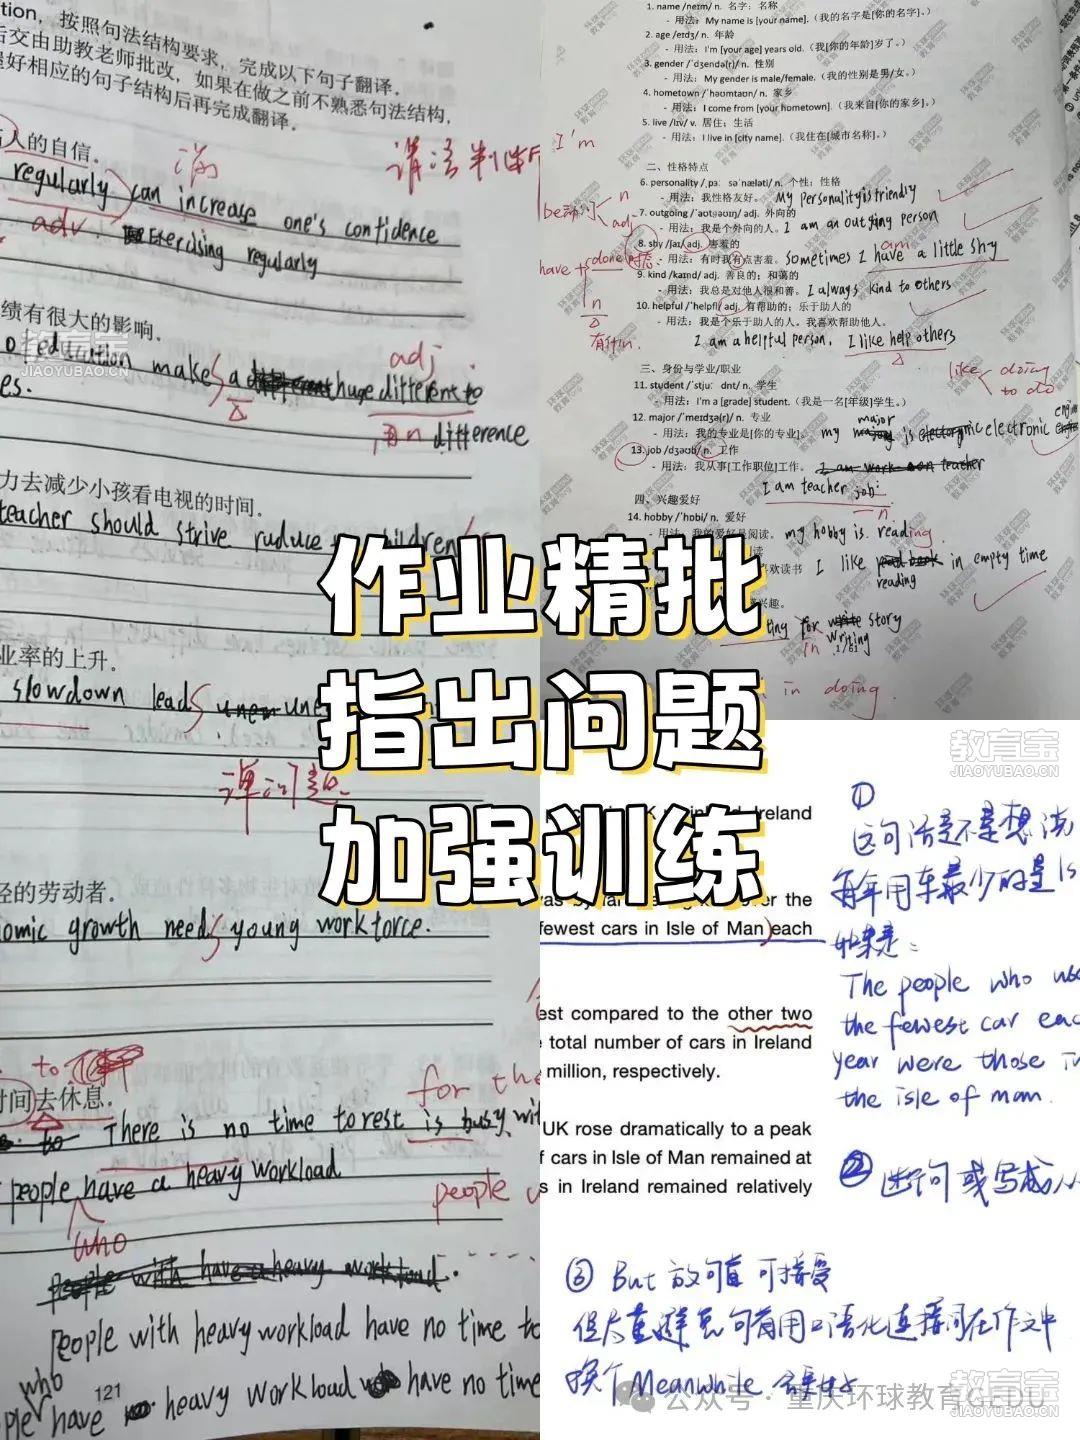 tion，按照句法结构要求，完成以下句子翻译.
后交由助教老师批改，如果在做之前不熟悉句法结构，
好相应的句子结构后再完成翻译.
人的自信.
regularly can increase one's confidence
adv
Exercising regularly
绩有很大的影响.
education makes a huge different to
es.
adj
n difference
力去减少小孩看电视的时间.
teacher should strive ruduce
业率的上升.
slowdown leads
轻的劳动者.
nomic growth need young workforce.
to
for the
时间去休息.
There is no time to rest is busy with
people have a heavy workload
people
who
People with heavy workload have no time to
who
ple have heavy workload have no time
121
1. name /neɪm/ n. 名字；名称
- 用法：My name is [your name].（我的名字是[你的名字]。）
2. age /eɪdʒ/ n. 年龄
- 用法：I'm [your age] years old.（我[你的年龄]岁了。）
3. gender /ˈdʒendə(r)/ n. 性别
- 用法：My gender is male/female.（我的性别是男/女。）
4. hometown /ˈhəʊmtaʊn/ n. 家乡
- 用法：I come from [your hometown].（我来自[你的家乡]。）
5. live /lɪv/ v. 居住；生活
- 用法：I live in [city name].（我住在[城市名称]。）
I'm
二、性格特点
6. personality /ˌpɜːsəˈnæləti/ n. 个性；性格
- 用法：我性格友好。 My personality is friendly
7. outgoing /ˈaʊtɡəʊɪŋ/ adj. 外向的
- 用法：我是个外向的人。I am an outgoing person
8. shy /ʃaɪ/ adj. 害羞的
am
- 用法：有时我有点害羞。sometimes I have a little shy
9. kind /kaɪnd/ adj. 善良的；和蔼的
- 用法：我总是对他人很和善。I always kind to others
10. helpful /ˈhelpfl/ adj. 有帮助的；乐于助人的
- 用法：我是个乐于助人的人。我喜欢帮助他人。
I am a helpful person. I like help others
like doing
to do
三、身份与学业/职业
11. student /ˈstjuːdnt/ n. 学生
- 用法：I'm a [grade] student.（我是一名[年级]学生。）
12. major /ˈmeɪdʒə(r)/ n. 专业
major
- 用法：我的专业是[你的专业]。 my is electronic
13. job /dʒəʊb/ n. 工作
- 用法：我从事[工作职位]工作。
I am teacher job.
n.
四、兴趣爱好
14. hobby /ˈhɒbi/ n. 爱好
- 用法：我的爱好是阅读。 my hobby is reading.
喜欢读书 I like in empty time
reading
for story
in writing
1/61
in doing.
作业精批
指出问题
加强训练
Ireland
over the
fewest cars in Isle of Man each
est compared to the other two
total number of cars in Ireland
million, respectively.
UK rose dramatically to a peak
f cars in Isle of Man remained at
s in Ireland remained relatively
①
这句话是不是想说
每年用车最少的是is
如果是：
The people who use
the fewest car each
year were those in
the isle of man.
② 断句或写成从
③ But 放句首可接受
但尽量避免句首用口语化连接词在作文中
换个 Meanwhile 会更好
教育宝
JIAOYUBAO.CN
教育宝
JIAOYUBAO.CN
公众号·重庆环球教育GEDU
教育宝
JIAOYUBAO.CN